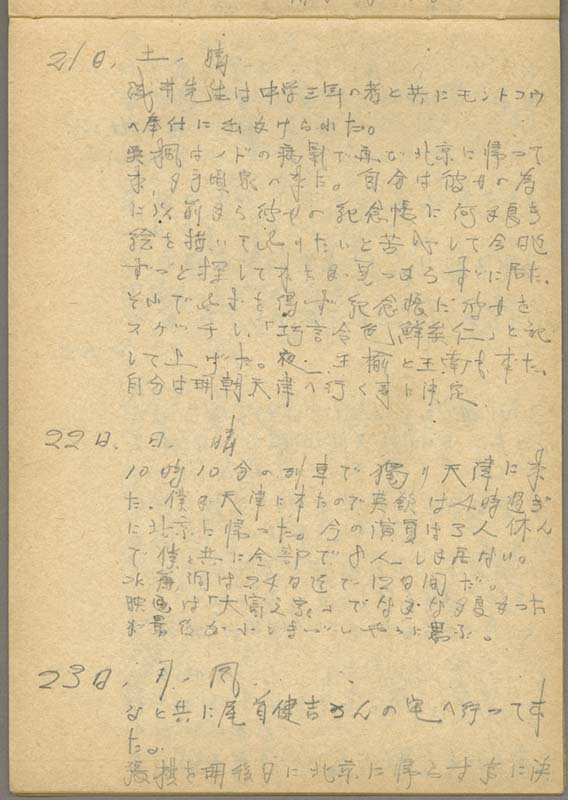 21日、土、晴
浅井先生は中学三年の者と共にモントコウ
へ奉仕に出かけられた。
英楓はノドの病気で再び北京に帰って
来、夕方頃家へ来た。自分は彼女の為
に以前から彼女の紀念帳に何か良き
絵を描いてやりたいと苦心して今日迄
ずっと探して来たが見つからずに居た。
それで止むを得ず紀念帳に彼女を
スケッチし、「巧言令色、鮮矣仁」と記
して上げた。夜、王楡と王 も来た。
自分は明朝天津へ行く事に決定
22日、日、晴
10時10分の列車で独り天津に来
た。僕が天津に来たので英 は4時過ぎ
に北京に帰った。今の演員は3人休ん
で僕と共に全部で8人しか居ない。
 期間は24日迄で12日間だ。
映画は「大富之家」でなかなか良かった
が最後が少しまづいやうに思ふ。
23日、月、風
 と共に尾首健吉さんの宅へ行って来
た。
 を明後日に北京に帰らす事に決